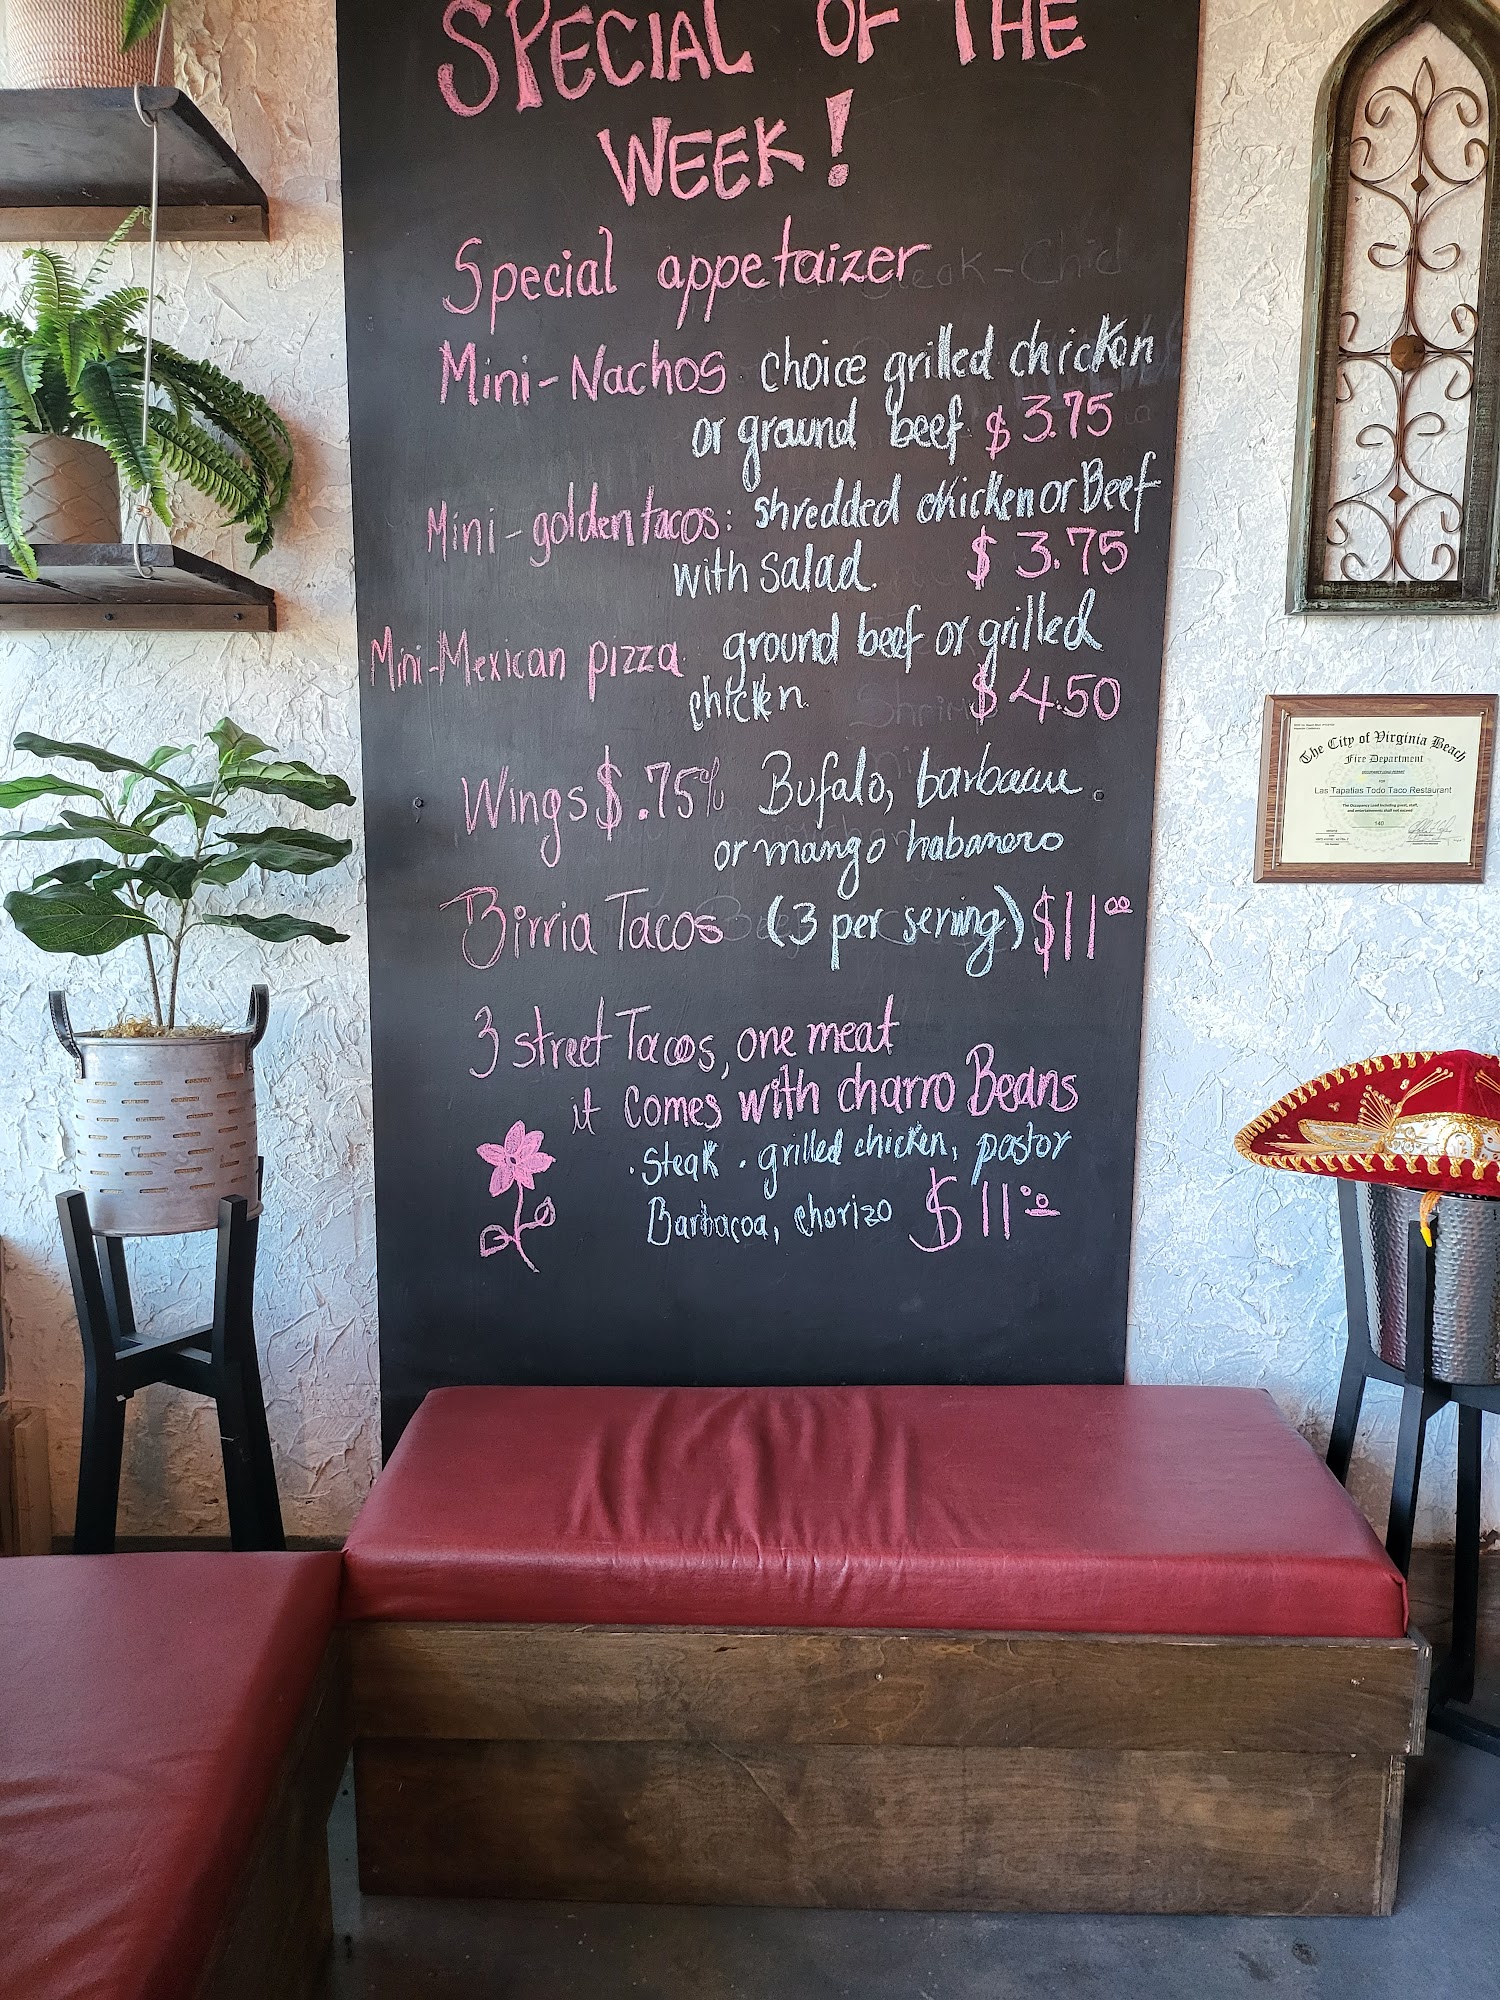 SPECIAL OF THE
WEEK!
Special appetaizer
Mini-Nachos choice grilled chicken
or ground beef $3.75
Mini-golden tacos: shredded chicken or Beef
with salad. $3.75
Mini-Mexican pizza ground beef or grilled
chicken. $4.50
Wings $.75¢ Bufalo, barbacue
or mango habanero
Birria Tacos (3 per serving) $11.00
3 street Tacos, one meat
it comes with charro Beans
. steak . grilled chicken, pastor
Barbacoa, chorizo $11.00
The City of Virginia Beach
Fire Department
OCCUPANCY LOAD PERMIT
FOR
Las Tapatias Todo Taco Restaurant
The Occupancy Load including guest, staff,
and entertainments shall not exceed
140